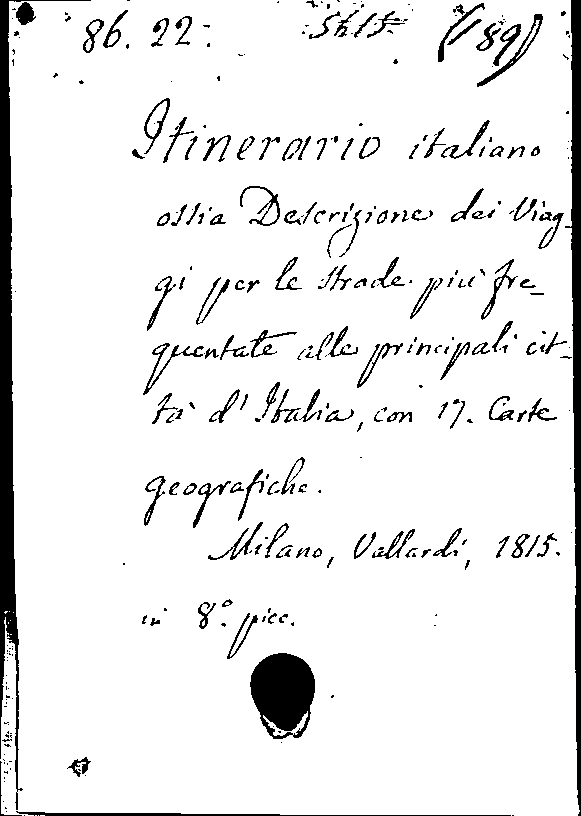 86. 22. 5615 (189)
Itinerario italiano
ossia Descrizione dei Viag-
gi per le strade più fre-
quentate alle principali cit-
tà d'Italia, con 17. Carte
geografiche.
Milano, Vallardi, 1815.
in 8.° picc.